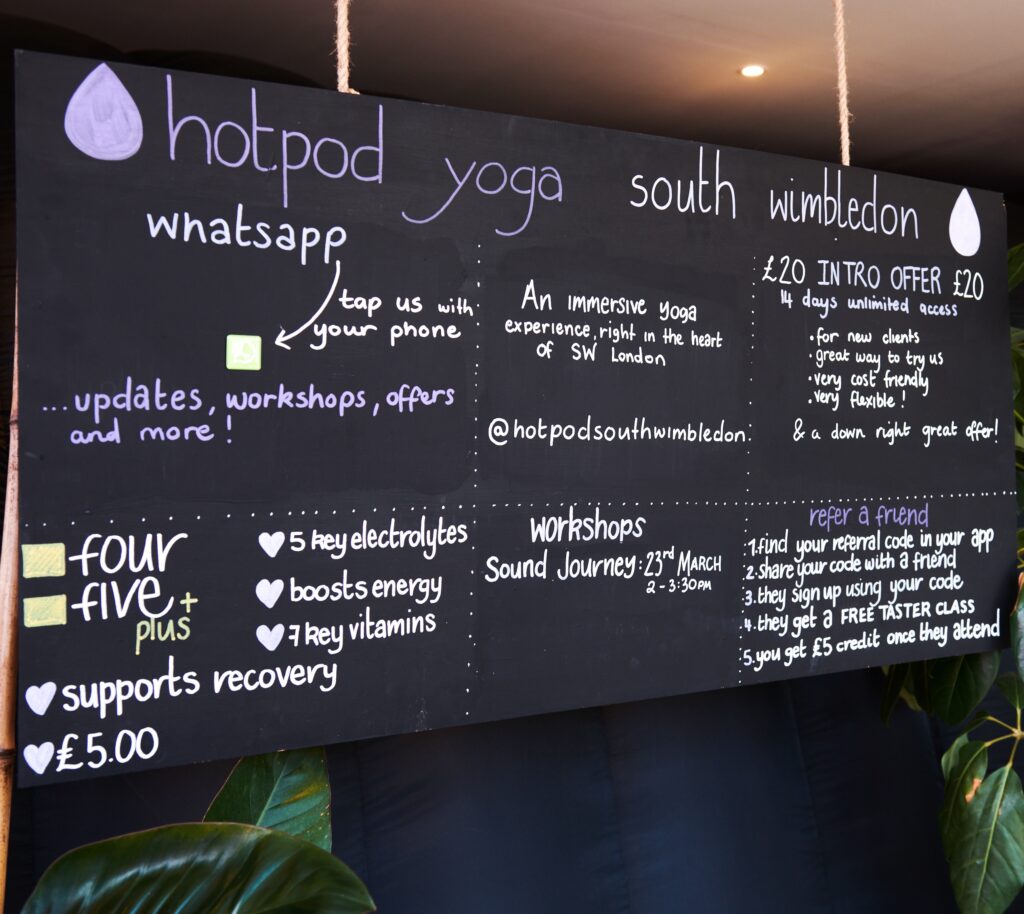 hotpod yoga south wimbledon
whatsapp
tap us with
your phone
...updates, workshops, offers
and more!
An immersive yoga
experience, right in the heart
of SW London
@hotpodsouthwimbledon
£20 INTRO OFFER £20
14 days unlimited access
• for new clients
• great way to try us
• very cost friendly
• very flexible!
& a down right great offer!
four
five +
plus
5 key electrolytes
boosts energy
7 key vitamins
supports recovery
£5.00
workshops
Sound Journey: 23rd MARCH
2 - 3:30PM
refer a friend
1. find your referral code in your app
2. share your code with a friend
3. they sign up using your code
4. they get a FREE TASTER CLASS
5. you get £5 credit once they attend